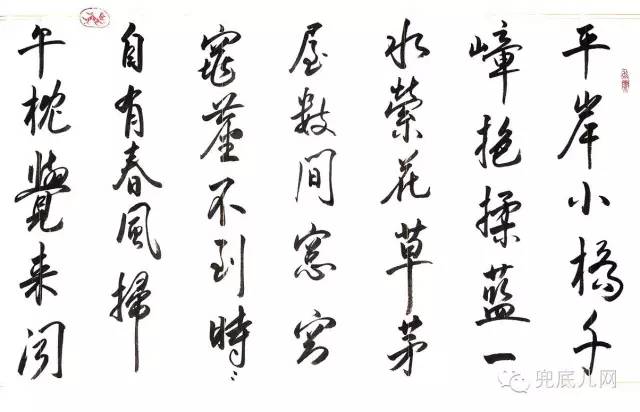 平岸小橋千
嶂抱揉藍一
水縈花草茅
屋數間窓窈
窕塵不到時〻
自有春風掃
午枕覺来聞
兜底儿网